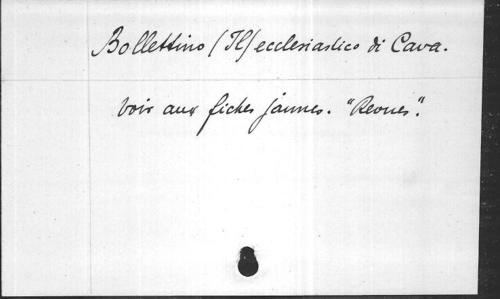 Bollettino (Il) ecclesiastico di Cava.
Voir aux fiches jaunes. "Revues".